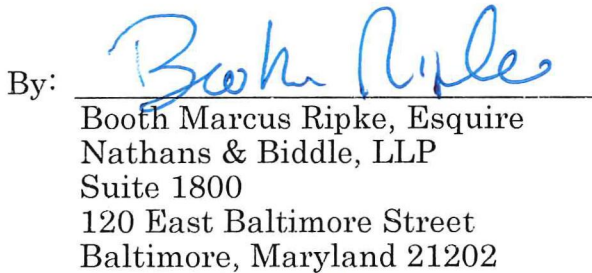 By: Booth Ripke
Booth Marcus Ripke, Esquire
Nathans & Biddle, LLP
Suite 1800
120 East Baltimore Street
Baltimore, Maryland 21202